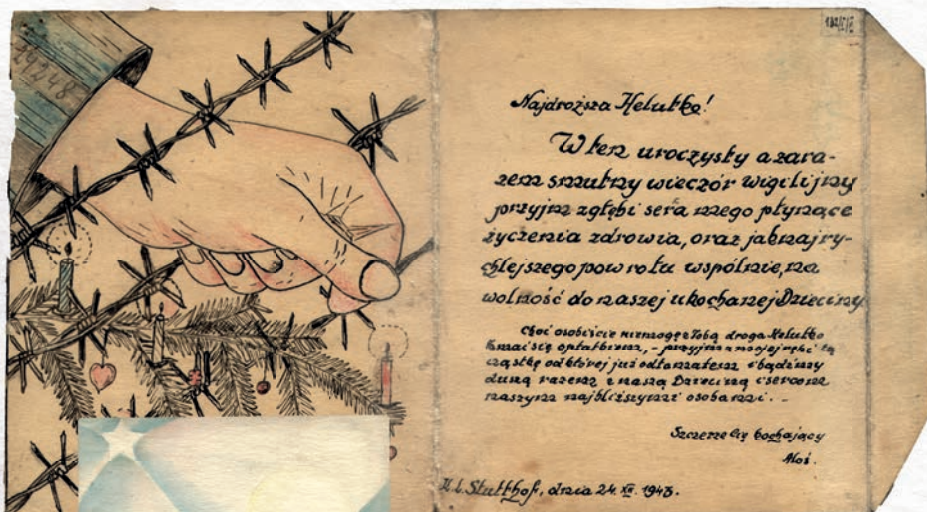 24248
Najdroższa Helutko!
W ten uroczysty a zara-
zem smutny wieczór wigilijny
przyjm z głębi serca mego płynące
życzenia zdrowia, oraz jaknajry-
chlejszego powrotu wspólnie, na
wolność do naszej ukochanej Dzieciny
Choć osobiście niemogę z Tobą droga Helutko
łamać się opłatkiem, - przyjm z mojej ręki tą
cząstkę od której już odłamałem i bądźmy
duszą razem z naszą Dzieciną i sercem
naszym najbliższymi osobami. -
Szczerze Cię kochający
Aloś.
K.L. Stutthof, dnia 24. XII. 1943.